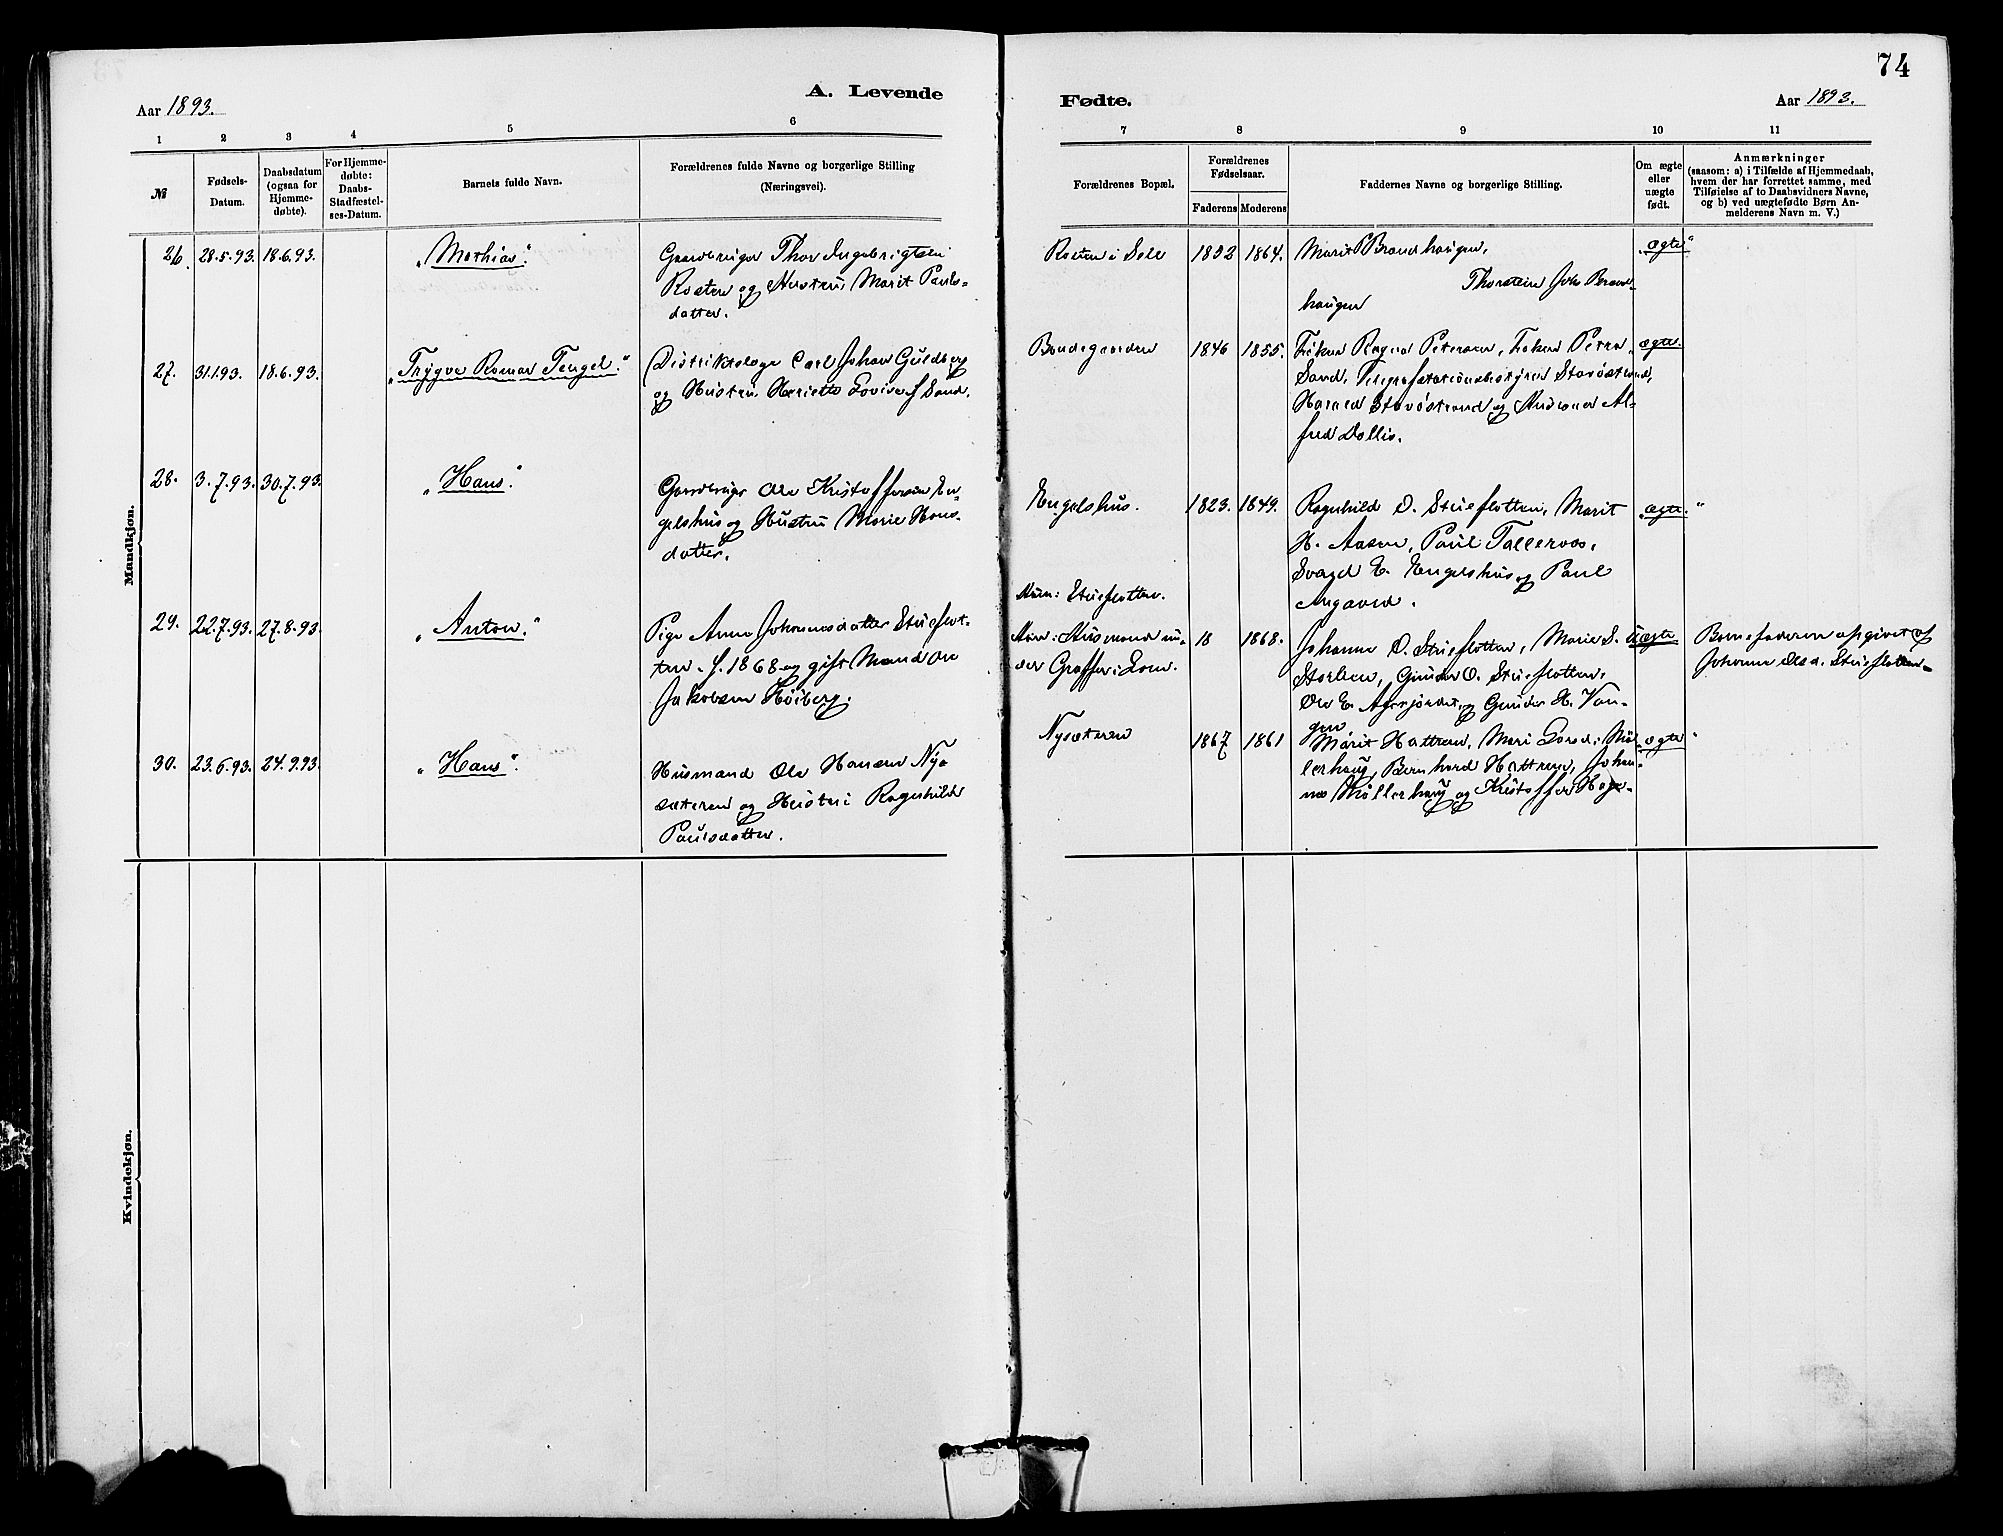 74
Aar 1893.
A. Levende
Fødte.
Aar 1893.
1 2 3 4 5 6 7 8 9 10 11
№
Fødsels-
Datum.
Daabsdatum
(ogsaa for
Hjemme-
døbte).
For Hjemme-
døbte:
Daabs-
Stadfæstel-
ses-Datum.
Barnets fulde Navn.
Forældrenes fulde Navne og borgerlige Stilling
(Næringsvei).
Forældrenes Bopæl.
Forældrenes
Fødselsaar.
Faderens Moderens
Faddernes Navne og borgerlige Stilling.
Om ægte
eller
uægte
født.
Anmærkninger
(saasom: a) i Tilfælde af Hjemmedaab,
hvem der har forrettet samme, med
Tilføielse af to Daabsvidners Navne,
og b) ved uægtefødte Børn An-
melderens Navn m. V.)
Mandkjøn.
26. 28.5.93. 18.6.93. "Mathias".
Gaardbruger Thor Ingebrigtsen
Rusten og Hustru Marit Pauls-
datter.
Rusten i Sell 1832 1864.
Marit P Brandhaugen,
Thorstein Johs Brand-
haugen
"ægte"
27. 31.1.93. 18.6.93. "Trygve Ragnar Tengel."
Distriktslæge Carl Johan Guldberg
og Hustru Henriette Lovise f Sand.
Bondegaarden 1846 1855.
Frøken Ragna Petersen, Frøken Petra
Sand, Telegrafstationsbestyrer
Harald og
fred Dallis.
ægte.
28. 3.7.93. 30.7.93. "Hans".
Gaardbruger Ole Kristoffersen En-
gelshus og Hustru Marie Hans-
datter.
Engelshus. 1823. 1849.
Ragnhild O. Stueflotten, Marit
H. Aasen, Paul Talleraas,
E. Engelshus og Paul
Angard.
"ægte."
29. 22.7.93. 27.8.93. "Anton."
Pige Anne Johannesdatter Stueflot-
ten f. 1868 og gift Mand Ole
Jakobsen Høiberg.
Hun: Stueflotten.
Han: Husmand un-
der Graffer i Lom.
18 1868.
Johanne O. Stueflotten, Marie S.
Storlien, Gunder O. Stueflotten,
Ole E. og Gunder H. Van-
gen
Uægte
Barnefaderen opgivet af
Johanne Olsd. Stueflotten
30. 23.6.93. 24.9.93. "Hans".
Husmand Ole Hansen Ny-
sæteren og Hustru Ragnhild
Paulsdatter.
Nysæteren 1867 1861
Marit Hattrem, Mari Larsd. Møl-
lerhaug, Bernhard Hattrem, Johan-
nes Møllerhaug og Kristoffer Hage-
"ægte"
Kvindekjøn.